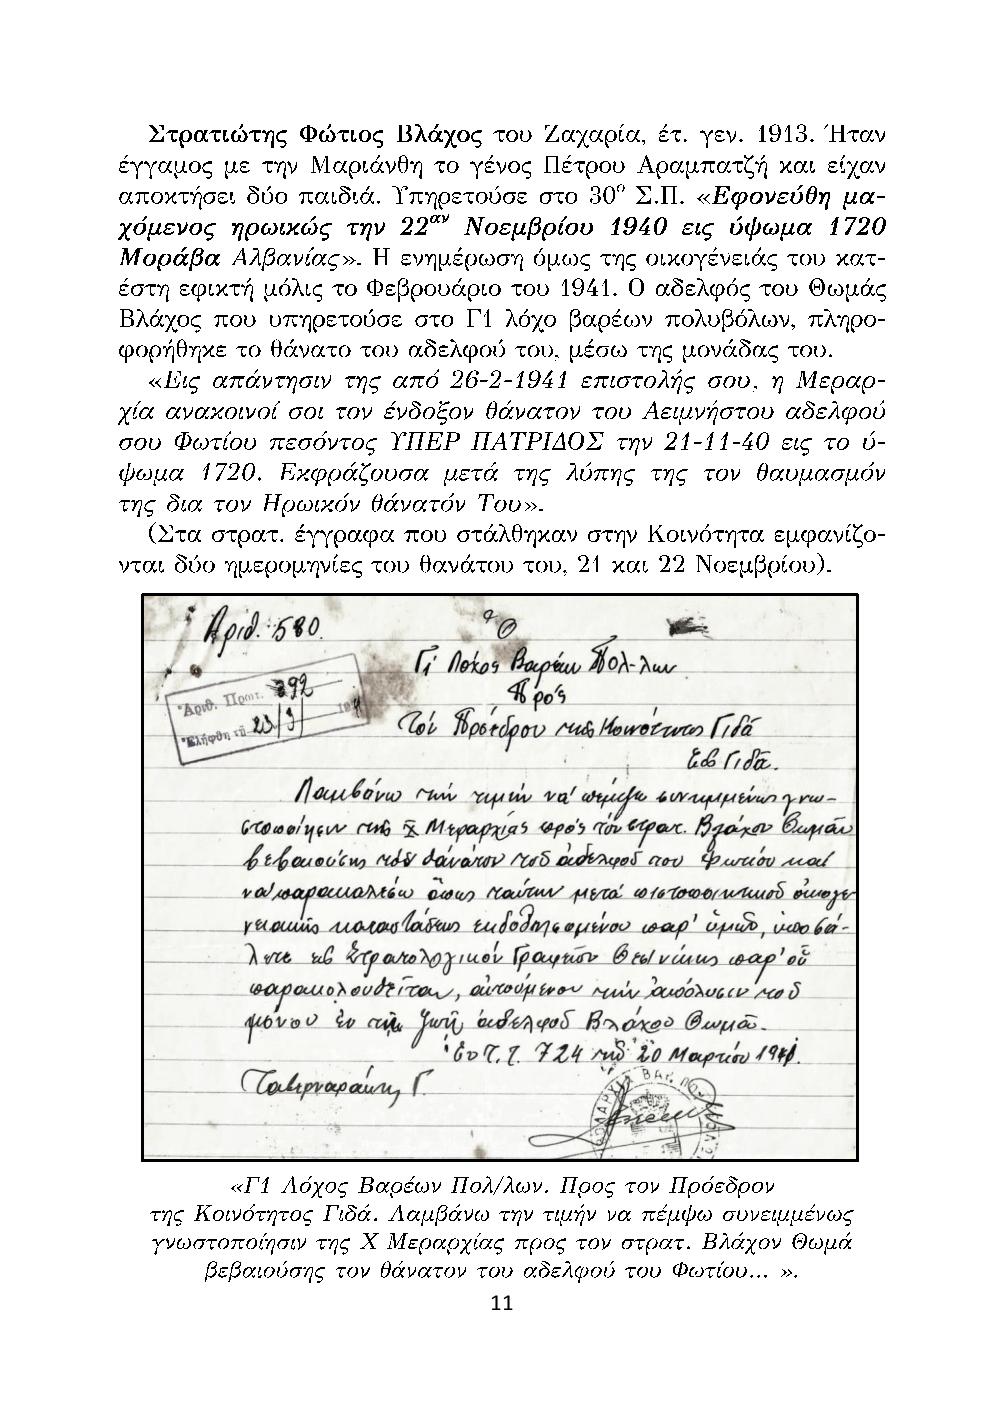 Στρατιώτης Φώτιος Βλάχος του Ζαχαρία, έτ. γεν. 1913. Ήταν
έγγαμος με την Μαριάνθη το γένος Πέτρου Αραμπατζή και είχαν
αποκτήσει δύο παιδιά. Υπηρετούσε στο 30ο Σ.Π. «Εφονεύθη μα-
χόμενος ηρωικώς την 22αν Νοεμβρίου 1940 εις ύψωμα 1720
Μοράβα Αλβανίας». Η ενημέρωση όμως της οικογένειάς του κατ-
έστη εφικτή μόλις το Φεβρουάριο του 1941. Ο αδελφός του Θωμάς
Βλάχος που υπηρετούσε στο Γ1 λόχο βαρέων πολυβόλων, πληρο-
φορήθηκε το θάνατο του αδελφού του, μέσω της μονάδας του.
«Εις απάντησιν της από 26-2-1941 επιστολής σου, η Μεραρ-
χία ανακοινοί σοι τον ένδοξον θάνατον του Αειμνήστου αδελφού
σου Φωτίου πεσόντος ΥΠΕΡ ΠΑΤΡΙΔΟΣ την 21-11-40 εις το ύ-
ψωμα 1720. Εκφράζουσα μετά της λύπης της τον θαυμασμόν
της δια τον Ηρωικόν θάνατόν Του».
(Στα στρατ. έγγραφα που στάλθηκαν στην Κοινότητα εμφανίζο-
νται δύο ημερομηνίες του θανάτου του, 21 και 22 Νοεμβρίου).
Ἀριθ. 580.
Γ1 Λόχος Βαρέων Πολ-λων
Πρός
Τόν Πρόεδρον τῆς Κοινότητος Γιδᾶ
Εἰς Γιδᾶ.
Ἀριθ. Πρωτ. 392
Ἐλήφθη τῇ 23/3/ 194
Λαμβάνω τήν τιμήν νά πέμψω συνημμένως γνω-
στοποίησιν τῆς Χ Μεραρχίας πρός τόν στρατ. Βλάχον Θωμᾶν
βεβαιούσης τόν θάνατον τοῦ ἀδελφοῦ του Φωτίου καί
νά παρακαλέσω ὅπως ταύτην μετά πιστοποιητικοῦ οἰκογε
νειακῆς καταστάσεως ἐκδοθησομένου παρ' ὑμῶν, ὑποβά-
λητε εἰς Στρατολογικόν Γραφεῖον Θεσ/νίκης παρ' οὗ
παρακολουθεῖται, αἰτούμενου τήν ἀπόλυσιν τοῦ
μόνου ἐν τῇ ζωῇ ἀδελφοῦ Βλάχου Θωμᾶ.
Ἐν Τ.Τ. 724 τῇ 20 Μαρτίου 1941.
«Γ1 Λόχος Βαρέων Πολ/λων. Προς τον Πρόεδρον
της Κοινότητος Γιδά. Λαμβάνω την τιμήν να πέμψω συνειμμένως
γνωστοποίησιν της Χ Μεραρχίας προς τον στρατ. Βλάχον Θωμά
βεβαιούσης τον θάνατον του αδελφού του Φωτίου... ».
11